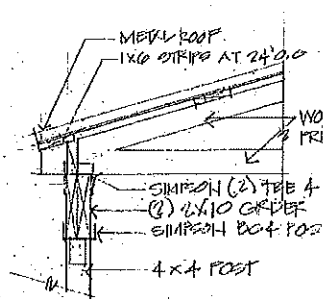 METAL ROOF
1X6 STRIPS AT 24" O.C
WO
PRE
SIMPSON (2)
(2) 2X10 GIRDER
SIMPSON BC4 POS
4 X 4 POST